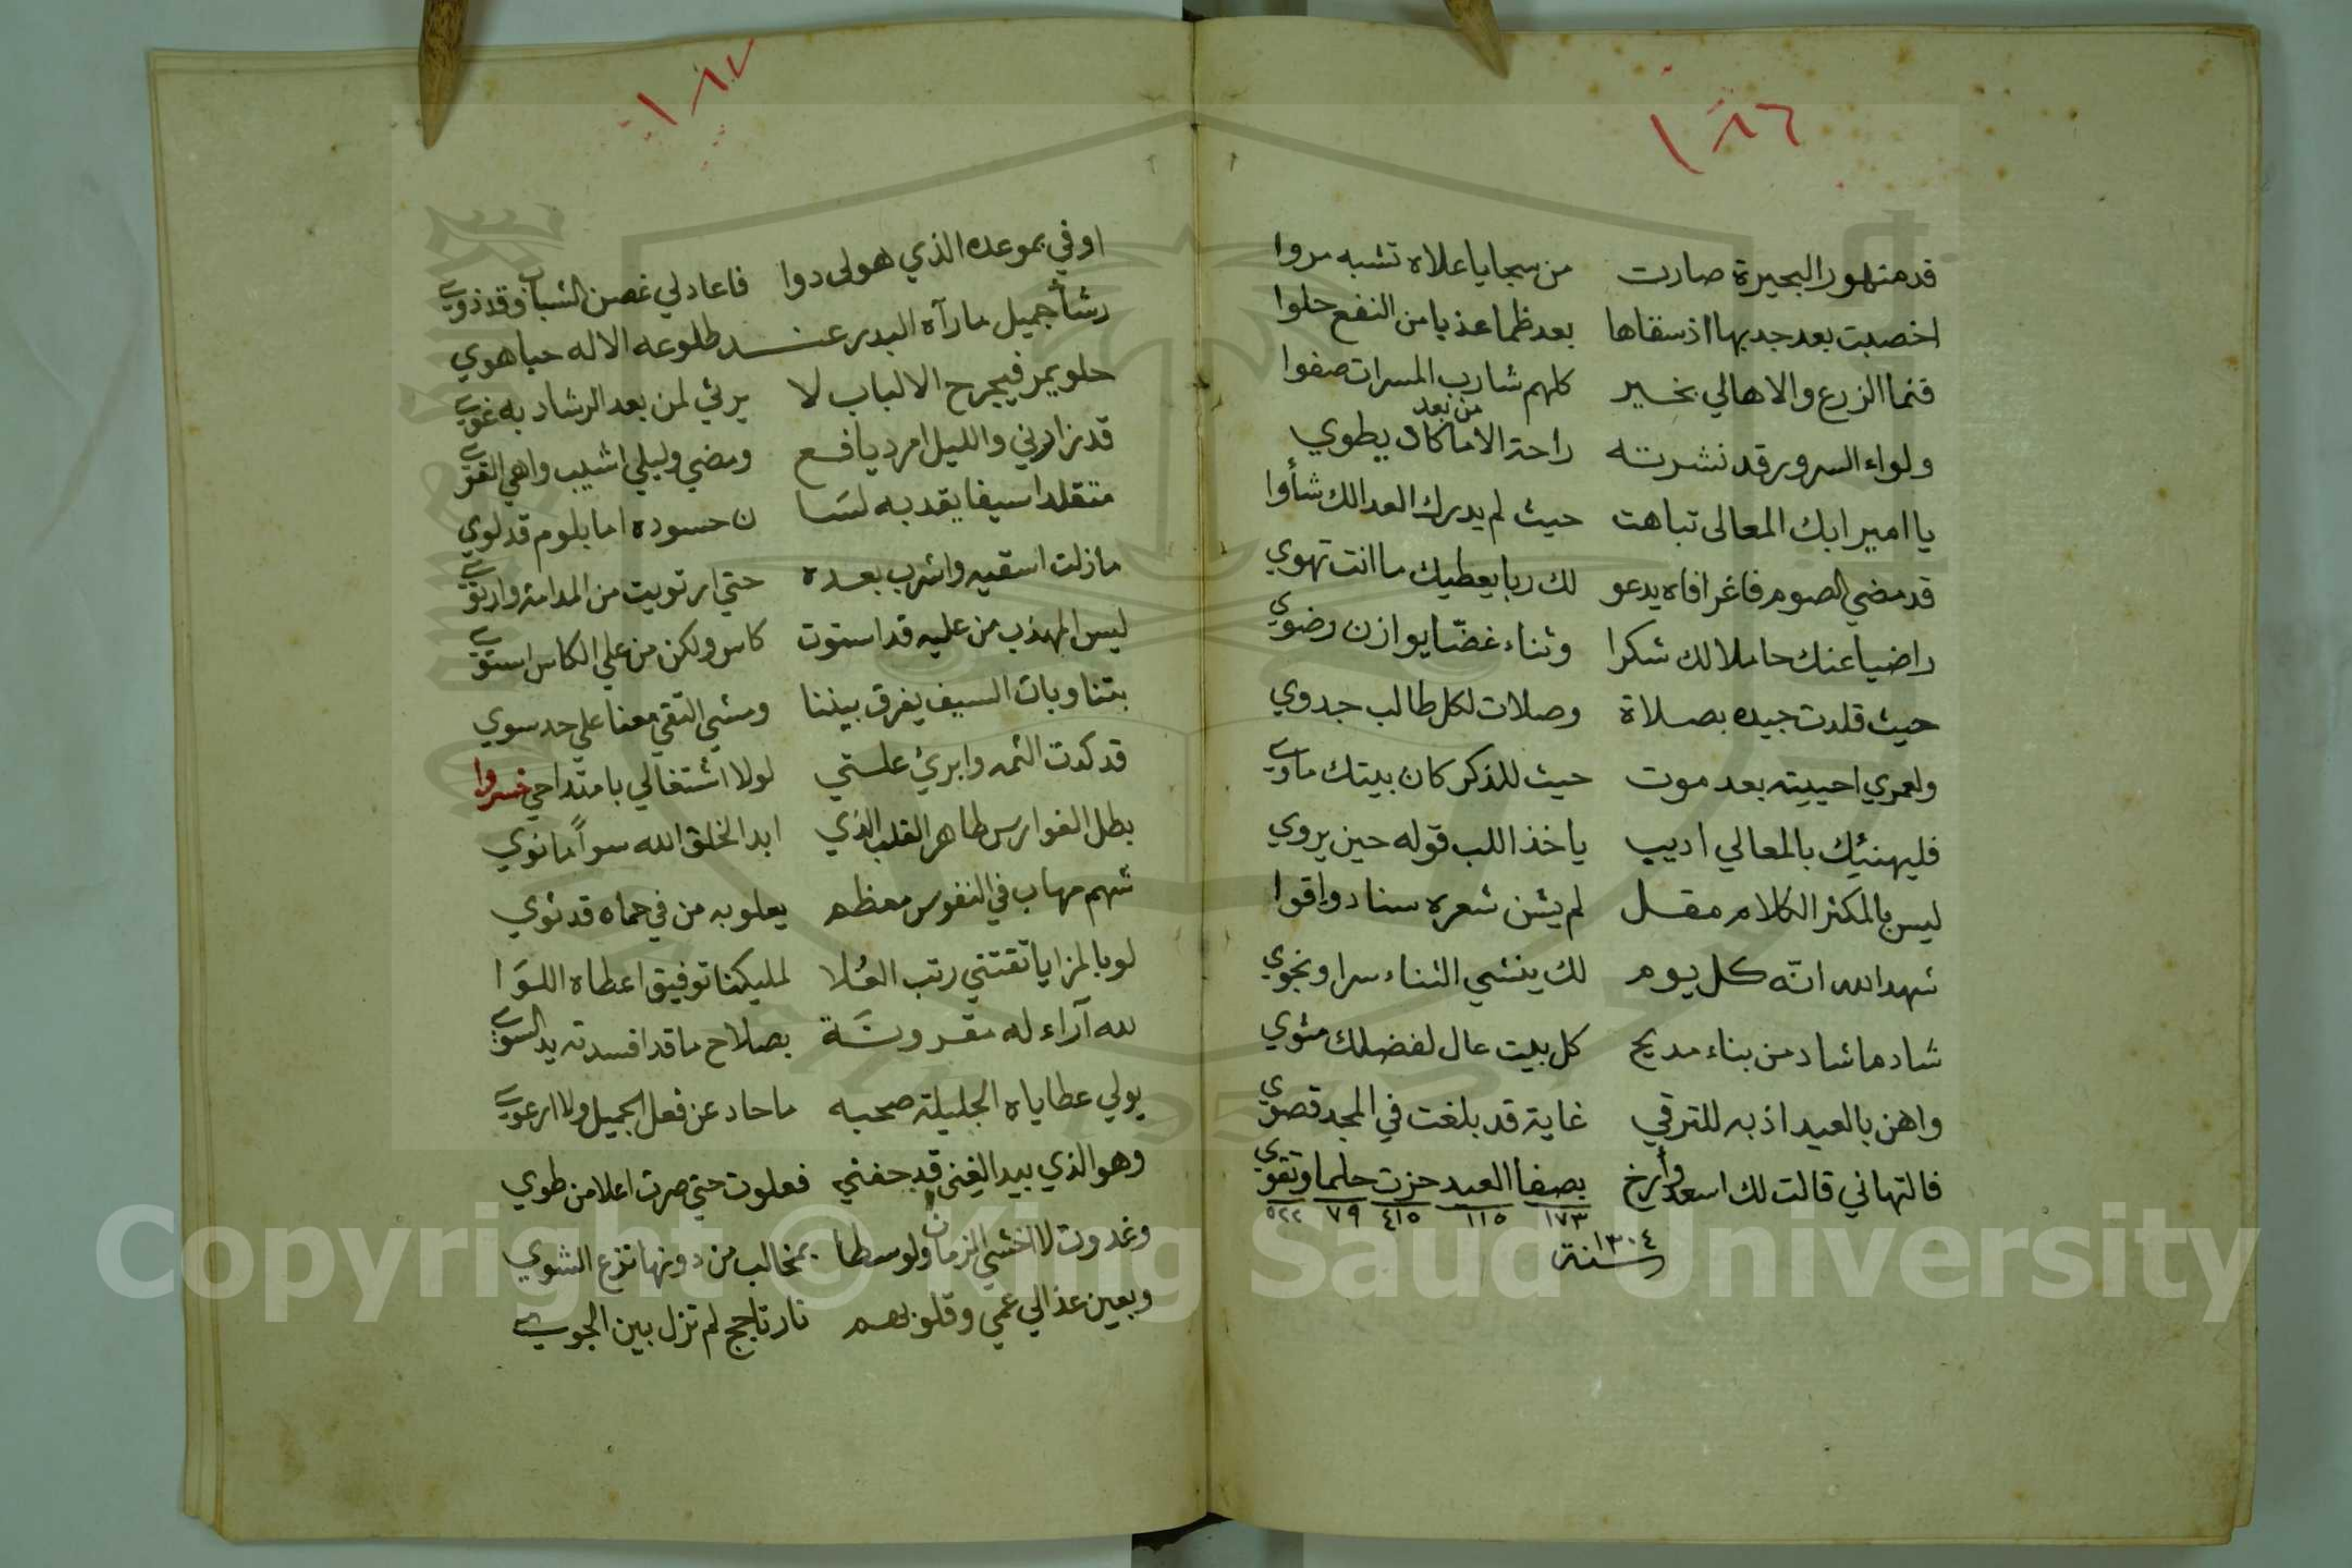 ١٨٦
قد منهور البحيرة صارت من سجايا علاه تشبه مروا
اخصبت بعد جدبها اذ سقاها بعد ظما عذبا من النفع حلوا
فنما الزرع والاهالي بخير كلهم شارب المسرات صفوا
ولواء السرور قد نشرته راحة الامن بعد ما كاد يطوي
يا اميرا بك المعالى تباهت حيث لم يدرك العدا لك شأوا
قد مضي الصوم فاغرا فاه يدعو لك ربا يعطيك ما انت تهوي
راضيا عنك حاملا لك شكرا وثناء غضّا يوازن رضوي
حيث قلدت جيده بصلاة وصلات لكل طالب جدوي
ولعمري احييته بعد موت حيث للذكر كان بيتك ماوي
فليهنئيك بالمعالي اديب ياخذ اللب قوله حين يروي
ليس بالمكثر الكلام مقل لم يشن شعره سنا دواقوا
شهد الله انّه كل يوم لك ينشي الثناء سرا ونجوي
شاد ما شاد من بناء مديح كل بيت عال لفضلك مثوي
واهن بالعيد اذ به للترقي غاية قد بلغت في المجد قصوي
فالتهاني قالت لك اسعد وأرخ بصفا العيد حزت حلما وتقوي
١٧٣ ١١٥ ٤١٥ ٧٩ ٥٢٢
سنة ١٣٠٤
١٨٧
اوفي بموعده الذي هولى دوا فاعاد لي غصن الشباب وقد ذوي
رشأ جميل ما رآه البدر عند طلوعه الا له حبا هوي
حلو يمر فيجرح الالباب لا يرثي لمن بعد الرشاد به غوي
قد زارني والليل امرد يافع ومضي وليلي اشيب واهي القوي
متقلدا سيفا يقد به لسَا ن حسوده اما بلوم قد لوي
مازلت اسقيه واشرب بعده حتي ارتويت من المدامة وارتوي
ليس المهذب من عليه قد استوت كاس ولكن من علي الكاس استوي
بتنا وبات السيف يفرق بيننا ومشي التقي معنا علي حد سوي
قد كدت الثمه وابرئ علتي لولا اشتغالي بامتداحي خسروا
بطل الفوارس طاهر القلب الذي ابدا لخلق الله سوأ ما نوي
شهم مهاب في النفوس معظم يعلو به من في حماه قد ثوي
لو بالمزايا تقتني رتب العُلا لمليكنا توفيق اعطاه اللوَا
لله آراء له مقرونَة بصلاح ما قد افسدته يد السوي
يولي عطاياه الجليلة صحبه ما حاد عن فعل الجميل ولا ارعوي
وهو الذي بيد الغنى قد حفني فعلوت حتي صرت اعلا من طوي
وغدوت لا اخشي الزمان ولو سطا بمخالب من دونها نزع الشوي
وبعين عذالي عمي وقلوبهم نار تاجج لم تزل بين الجوي
Copyright © King Saud University